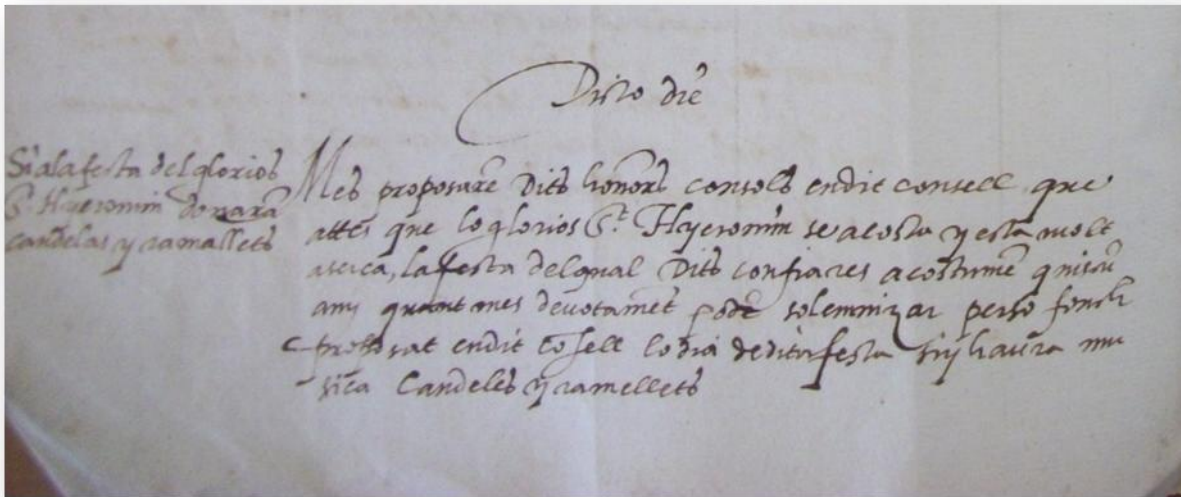 Dicto die
Si a la festa del glorios
St. Hyeronim donarã
candelas y ramallets
Mes proposarẽ dits honors consols en dit consell que
attes que lo glorios St. Hyeronim se acosta y esta molt
aserca, la festa del qual dits confrares acostumẽ quiscũ
any quant mes devotamẽt podẽ solemnizar perso fonch
proposat en dit cõsell lo dia de dita festa si y haura mu
sica Candeles y ramellets